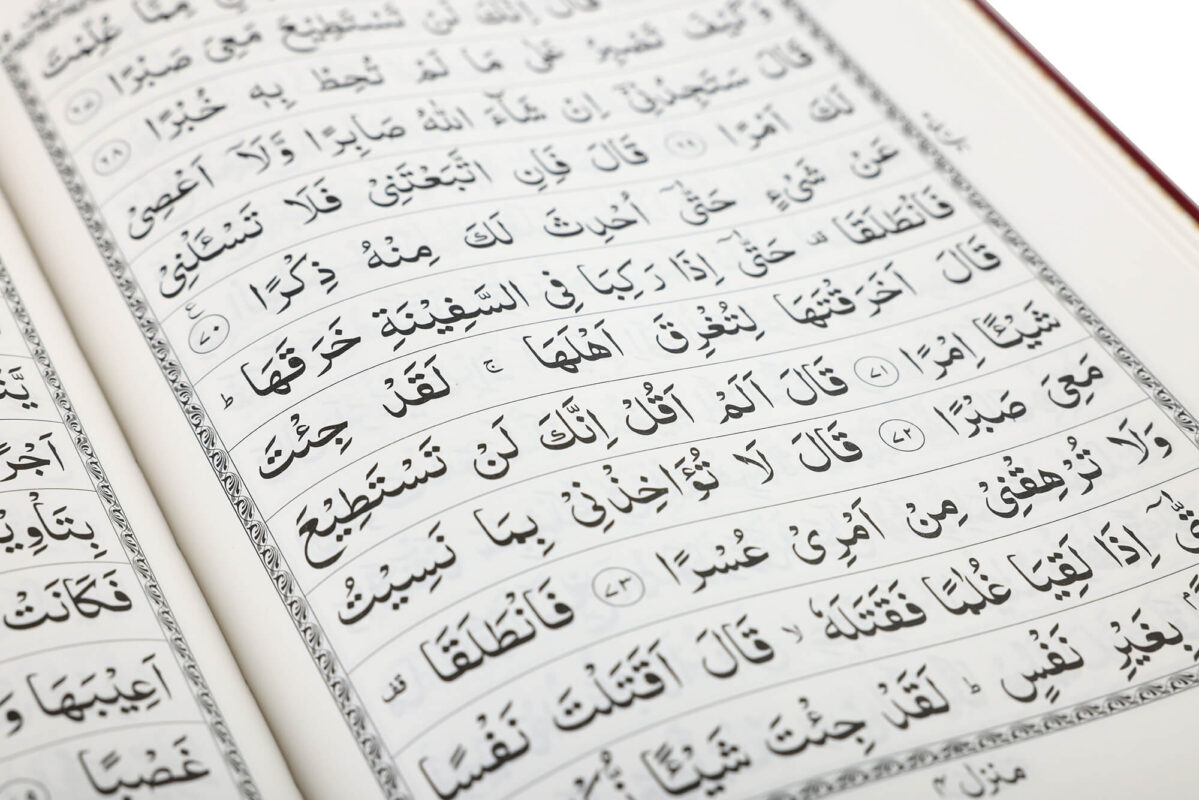 مِمَّا عُلِّمْتَ
قَالَ اِنَّكَ لَنْ تَسْتَطِيْعَ مَعِيَ صَبْرًا ٦٧
وَكَيْفَ تَصْبِرُ عَلٰى مَا لَمْ تُحِطْ بِهٖ خُبْرًا ٦٨
قَالَ سَتَجِدُنِيْٓ اِنْ شَآءَ اللّٰهُ صَابِرًا وَّلَآ اَعْصِيْ
لَكَ اَمْرًا ٦٩ قَالَ فَاِنِ اتَّبَعْتَنِيْ فَلَا تَسْـَٔلْنِيْ
عَنْ شَيْءٍ حَتّٰٓى اُحْدِثَ لَكَ مِنْهُ ذِكْرًا ٧٠ ع
فَانْطَلَقَا ۥقف حَتّٰٓى اِذَا رَكِبَا فِي السَّفِيْنَةِ خَرَقَهَا ط
قَالَ اَخَرَقْتَهَا لِتُغْرِقَ اَهْلَهَا ج لَقَدْ جِئْتَ
شَيْـًٔا اِمْرًا ٧١ قَالَ اَلَمْ اَقُلْ اِنَّكَ لَنْ تَسْتَطِيْعَ
مَعِيَ صَبْرًا ٧٢ قَالَ لَا تُؤَاخِذْنِيْ بِمَا نَسِيْتُ
وَلَا تُرْهِقْنِيْ مِنْ اَمْرِيْ عُسْرًا ٧٣ فَانْطَلَقَا قف
اِذَا لَقِيَا غُلٰمًا فَقَتَلَهٗ لا قَالَ اَقَتَلْتَ نَفْسًا
بِغَيْرِ نَفْسٍ ط لَقَدْ جِئْتَ شَيْـًٔا
منزل ٤
اَجْرًا
بِتَاْوِيْ
فَكَانَتْ
اَعِيْبَهَا وَ
غَصْبًا